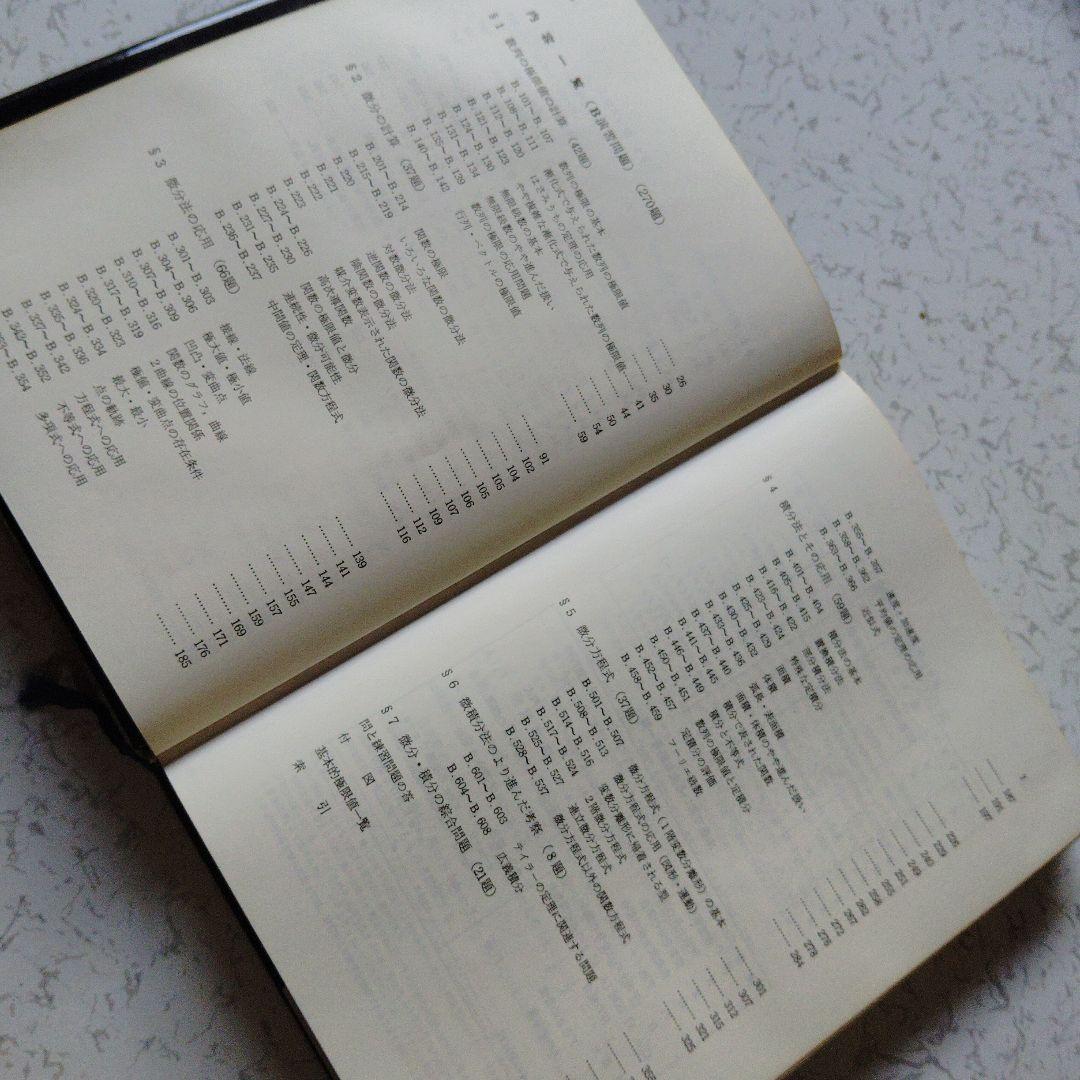 内容一覧 (B演習問題) (270題)
§1 数列の極限値の計算 (42題)
B.101～B.107 数列の極限の基本 …… 26
B.108～B.111 漸化式で与えられた数列の極限値 …… 30
B.112～B.120 はさみうちの定理の応用 …… 35
B.121～B.123 やや複雑な漸化式で与えられた数列の極限値 …… 41
B.124～B.130 無限級数の基本 …… 44
B.131～B.134 無限級数のやや進んだ扱い …… 50
B.135～B.139 数列の極限の応用問題 …… 54
B.140～B.142 行列・ベクトルの極限値 …… 59
§2 微分の計算 (37題)
B.201～B.214 関数の極限 …… 91
B.215～B.219 いろいろな関数の微分法 …… 102
B.220 対数微分法 …… 104
B.221 逆関数の微分法 …… 105
B.222 陰関数の微分法 …… 105
B.223 媒介変数表示された関数の微分法 …… 106
B.224～B.226 高次導関数 …… 107
B.227～B.230 関数の極限値と微分 …… 109
B.231～B.235 連続性・微分可能性 …… 112
B.236～B.237 中間値の定理・関数方程式 …… 116
§3 微分法の応用 (66題)
B.301～B.303 接線・法線 …… 139
B.304～B.306 極大値・極小値 …… 141
B.307～B.309 凹凸・変曲点 …… 144
B.310～B.316 関数のグラフ，曲線 …… 147
B.317～B.319 2曲線の位置関係 …… 155
B.320～B.323 極値・変曲点の存在条件 …… 157
B.324～B.334 最大・最小 …… 159
B.335～B.336 点の軌跡 …… 169
B.337～B.342 方程式への応用 …… 171
B.343～B.352 不等式への応用 …… 176
～B.354 多項式への応用 …… 185
B.355～B.357 速度・加速度
B.358～B.362 平均値の定理の応用
B.363～B.366 近似式
§4 積分法とその応用 (59題)
B.401～B.404 積分法の基本
B.405～B.415 置換積分法
B.416～B.422 部分積分法
B.423～B.424 特殊な定積分
B.425～B.429 面積
B.430～B.432 体積
B.433～B.436 弧長・表面積
B.437～B.440 面積・体積のやや進んだ扱い
B.441～B.445 積分で表された関数
B.446～B.449 積分と不等式 …… 273
B.450～B.451 数列の極限値と定積分 …… 276
B.452～B.457 定積分の評価 …… 278
B.458～B.459 フーリエ級数 …… 284
§5 微分方程式 (37題)
B.501～B.507 微分方程式(1階変数分離形)の基本 …… 301
B.508～B.513 微分方程式の応用(図形・運動) …… 307
B.514～B.516 変数分離形に帰着される型 …… 312
B.517～B.524 2階微分方程式 …… 315
B.525～B.527 連立微分方程式 …… 321
B.528～B.537 微分方程式以外の関数方程式 …… 325
§6 微積分法のより進んだ考察 (8題)
B.601～B.603 テイラーの定理に関連する問題
B.604～B.608 広義積分
§7 微分・積分の綜合問題 (21題)
問と練習問題の答
付図 基本的極限値一覧
索引